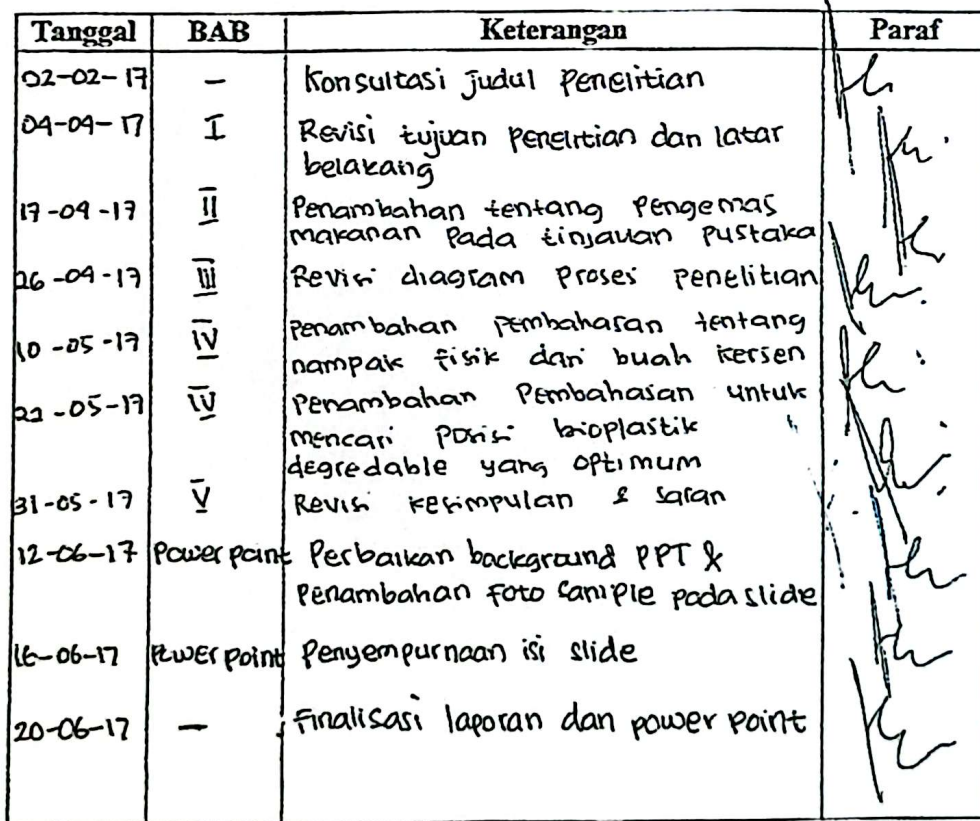 Tanggal BAB Keterangan Paraf
02-02-17 - Konsultasi judul Penelitian
04-04-17 I Revisi tujuan Penelitian dan latar
belakang
17-04-17 II Penambahan tentang Pengemas
makanan Pada tinjauan Pustaka
26-04-17 III Revisi diagram Proses Penelitian
10-05-17 IV Penambahan Pembahasan tentang
nampak fisik dari buah kersen
-05-17 IV Penambahan Pembahasan untuk
mencari Posisi bioplastik
degredable yang optimum
31-05-17 V Revisi kesimpulan & saran
12-06-17 Power point Perbaikan background PPT &
Penambahan foto sample pada slide
16-06-17 Power point Penyempurnaan isi slide
20-06-17 - Finalisasi laporan dan power point